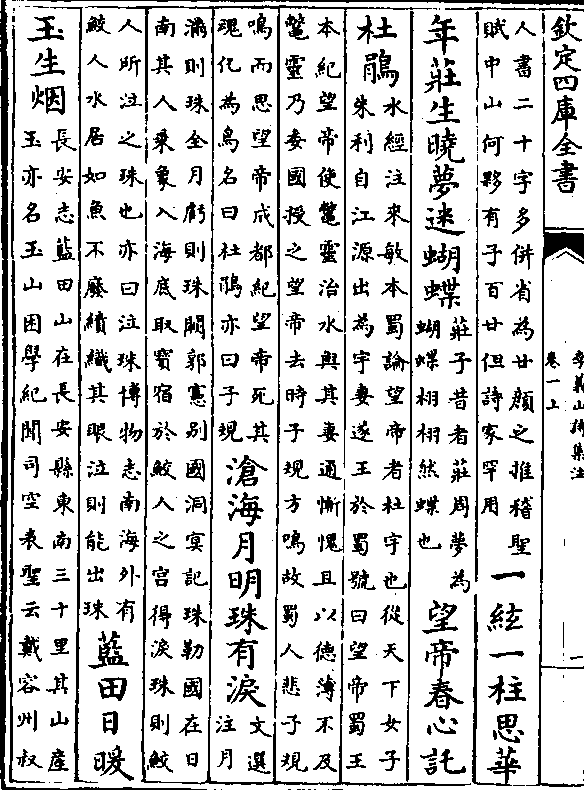 欽定四庫全書
卷一上
人書二十字多併省為廿顔之推稽聖
賦中山何夥有子百廿但詩家罕用
一絃一柱思華
年莊生曉夢迷蝴蝶
莊子昔者莊周夢為
蝴蝶栩栩然蝶也
望帝春心託
杜鵑
水經注來敏本蜀論望帝者杜宇也從天下女子
朱利自江源出為宇妻遂王於蜀號曰望帝蜀王
本紀望帝使鼈靈治水與其妻通慚愧且以德薄不及
鼈靈乃委國授之望帝去時子規方鳴故蜀人悲子規
鳴而思望帝成都紀望帝死其
魂化為鳥名曰杜鵑亦曰子規
滄海月明珠有淚
文選
注月
滿則珠全月虧則珠闕郭憲别國洞冥記珠勒國在日
南其人乗象入海底取寳宿於鮫人之宫得淚珠則鮫
人所泣之珠也亦曰泣珠博物志南海外有
鮫人水居如魚不廢績織其眼泣則能出珠
藍田日暖
玉生烟
長安志藍田山在長安縣東南三十里其山産
玉亦名玉山困學紀聞司空表聖云戴容州叔